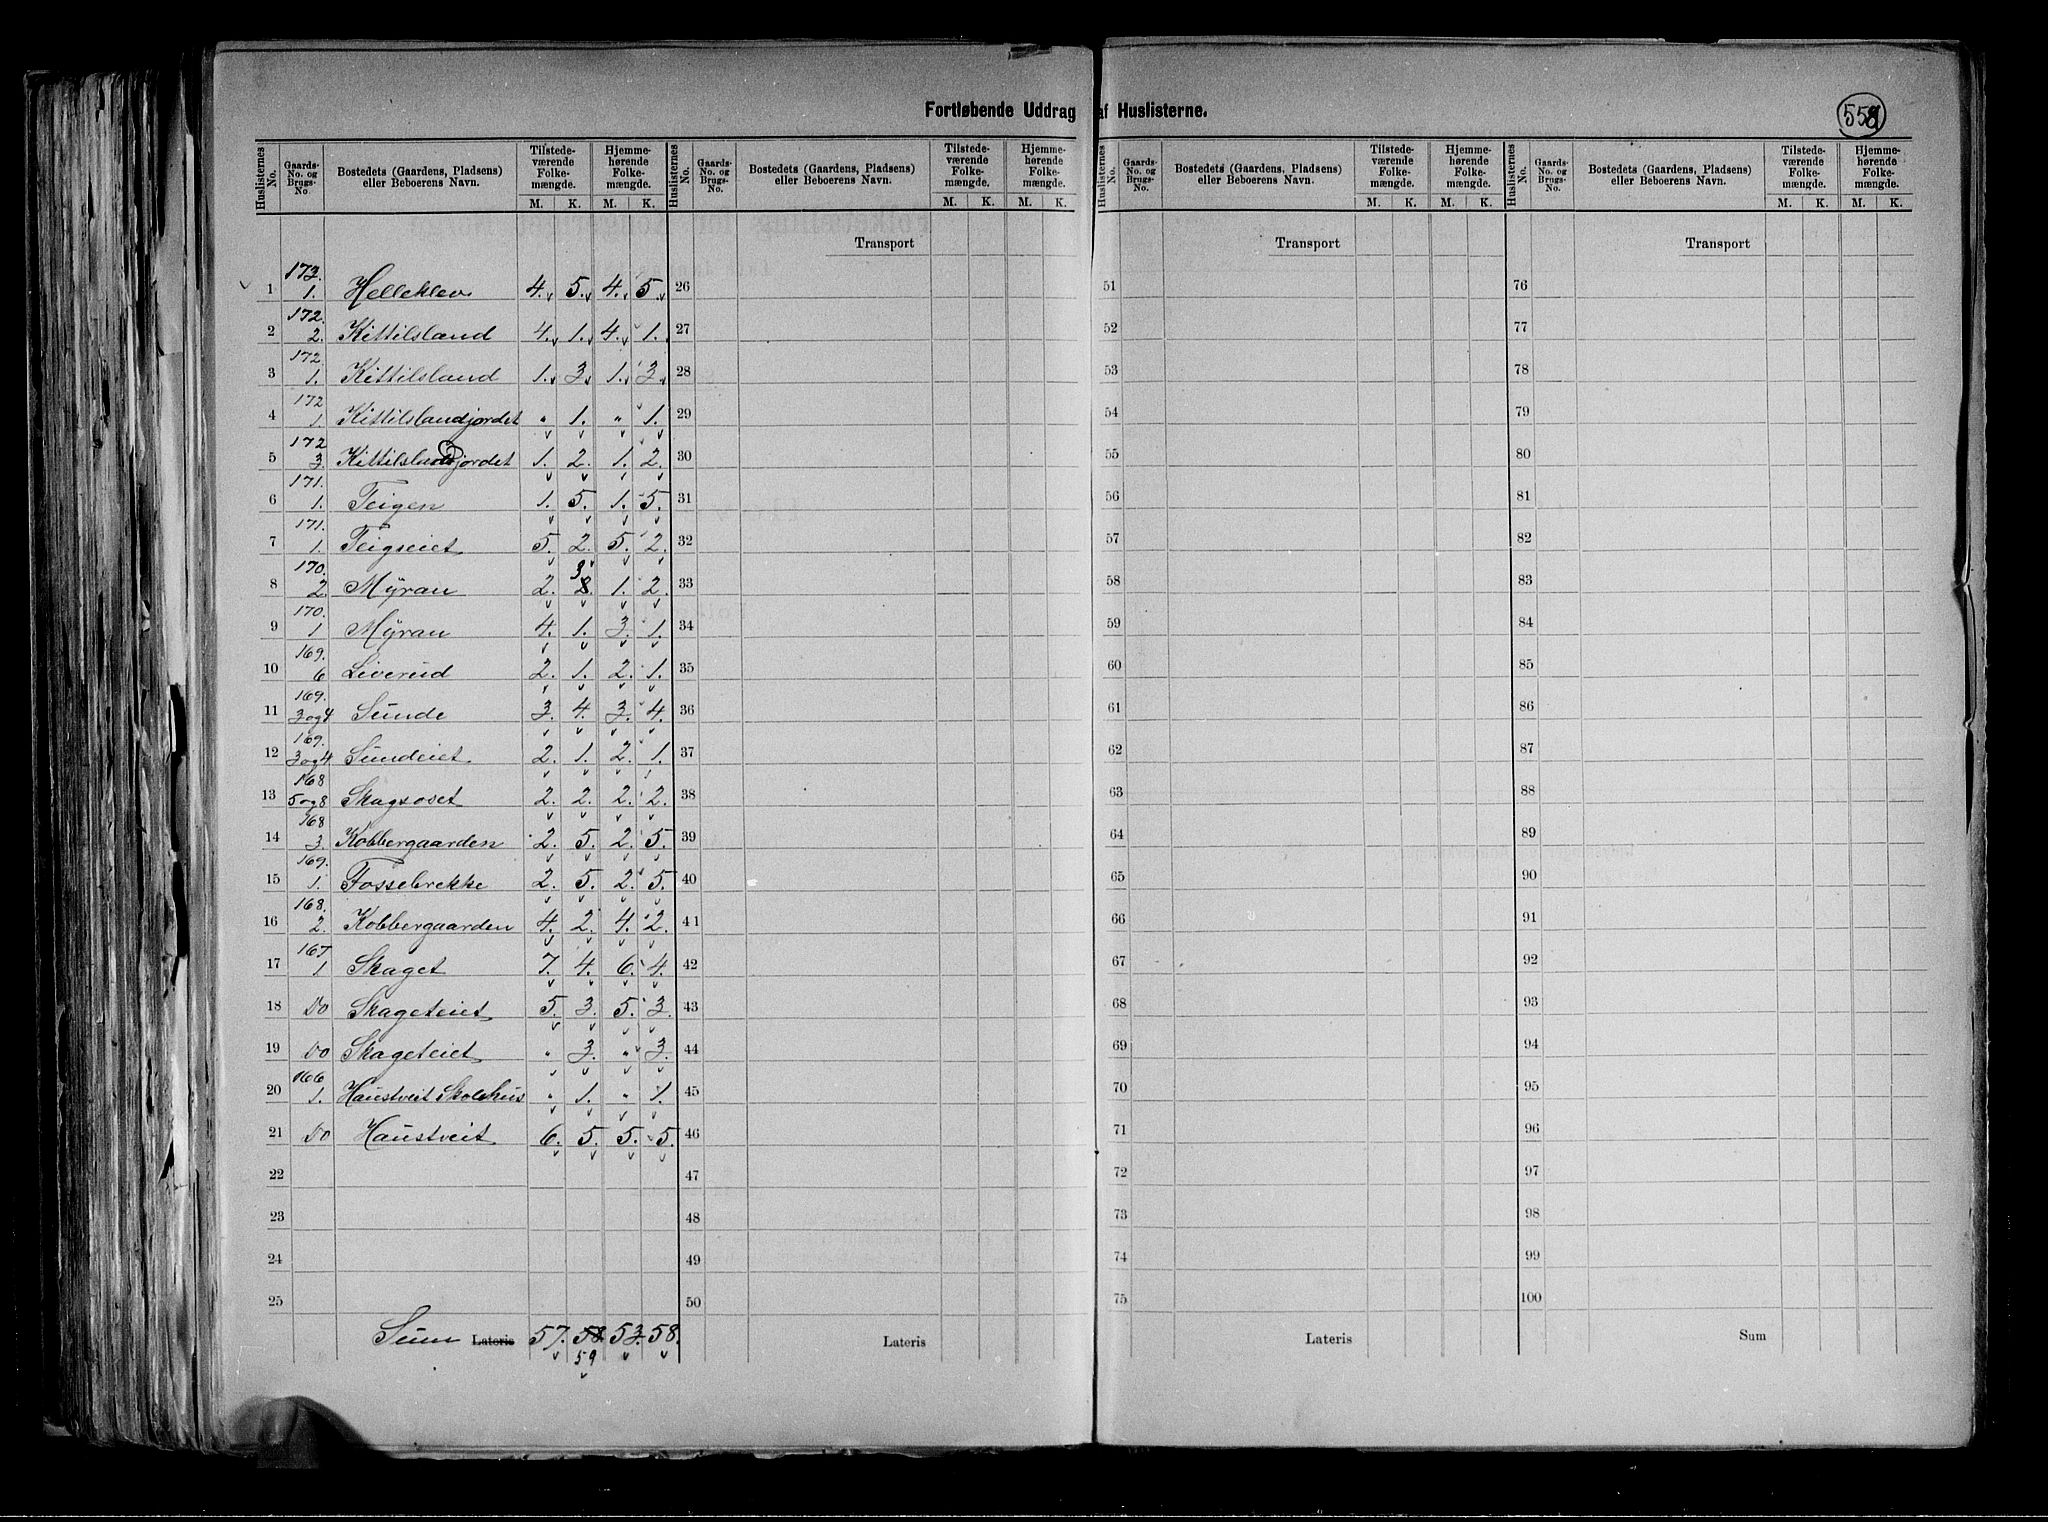 Fortløbende Uddrag af Huslisterne.
559
Huslisternes No. | Gaards-No. og Brugs-No. | Bostedets (Gaardens, Pladsens) eller Beboerens Navn. | Tilstedeværende Folkemængde. M. K. | Hjemmehørende Folkemængde. M. K.
Huslisternes No. | Gaards-No. og Brugs-No. | Bostedets (Gaardens, Pladsens) eller Beboerens Navn. | Tilstedeværende Folkemængde. M. K. | Hjemmehørende Folkemængde. M. K.
Huslisternes No. | Gaards-No. og Brugs-No. | Bostedets (Gaardens, Pladsens) eller Beboerens Navn. | Tilstedeværende Folkemængde. M. K. | Hjemmehørende Folkemængde. M. K.
Huslisternes No. | Gaards-No. og Brugs-No. | Bostedets (Gaardens, Pladsens) eller Beboerens Navn. | Tilstedeværende Folkemængde. M. K. | Hjemmehørende Folkemængde. M. K.
Transport Transport Transport
1 173. 1. Helleklev 4. 5. 4. 5. 26 51 76
2 172. 2. Kittilsland 4. 1. 4. 1. 27 52 77
3 172 1. Kittilsland 1. 3. 1. 3. 28 53 78
4 172 1. Kittilslandjordet " 1. " 1. 29 54 79
5 172 3. Kittilslandjordet 1. 2. 1. 2. 30 55 80
6 171. 1. Teigen 1. 5. 1. 5. 31 56 81
7 171. 1. Teigseiet 5. 2. 5. 2. 32 57 82
8 170. 2. Myran 2. 3 1. 2. 33 58 83
9 170. 1 Myran 4. 1. 3. 1. 34 59 84
10 169. 6 Liverud 2. 1. 2. 1. 35 60 85
11 169. 3og4 Sunde 3. 4. 3. 4. 36 61 86
12 169. 3og4 Sundeiet 2. 1. 2. 1. 37 62 87
13 168 5og8 Skagsoset 2. 2. 2. 2. 38 63 88
14 168 3. Kobbergaarden 2. 5. 2. 5. 39 64 89
15 169. 1. Fossebrekke 2. 5. 2. 5. 40 65 90
16 168. 2. Kobbergaarden 4. 2. 4. 2. 41 66 91
17 167. 1 Skaget 7. 4. 6. 4. 42 67 92
18 Do Skageteiet 5. 3. 5. 3. 43 68 93
19 Do Skageteiet " 3. " 3. 44 69 94
20 166 1. Haustveit Skolehus " 1. " 1. 45 70 95
21 Do Haustveit 6. 5. 5. 5. 46 71 96
22 47 72 97
23 48 73 98
24 49 74 99
25 50 75 100
Sum Lateris 57. 58. 53. 58. Lateris Lateris Sum
59